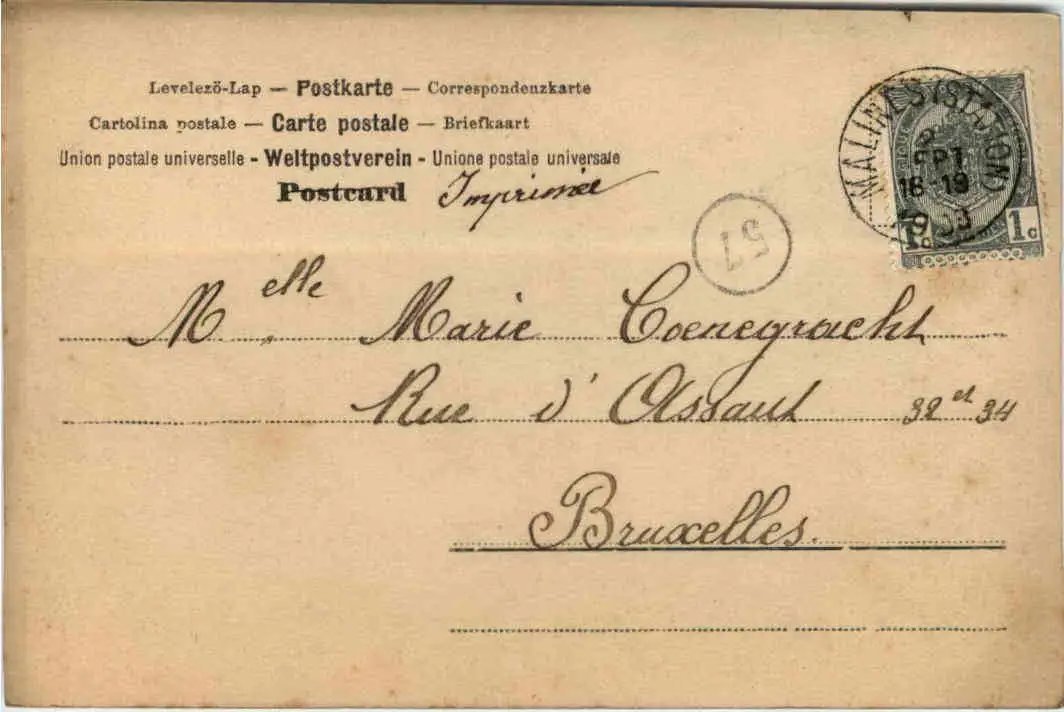 Levelező-Lap — Postkarte — Correspondenzkarte
Cartolina postale — Carte postale — Briefkaart
Union postale universelle - Weltpostverein - Unione postale universale
Postcard Imprimée
MALINES (STATION)
SEPT
18-19
1c 1c
57
Melle Marie Coenegracht
Rue d'Assaut 32 et 34
Bruxelles.